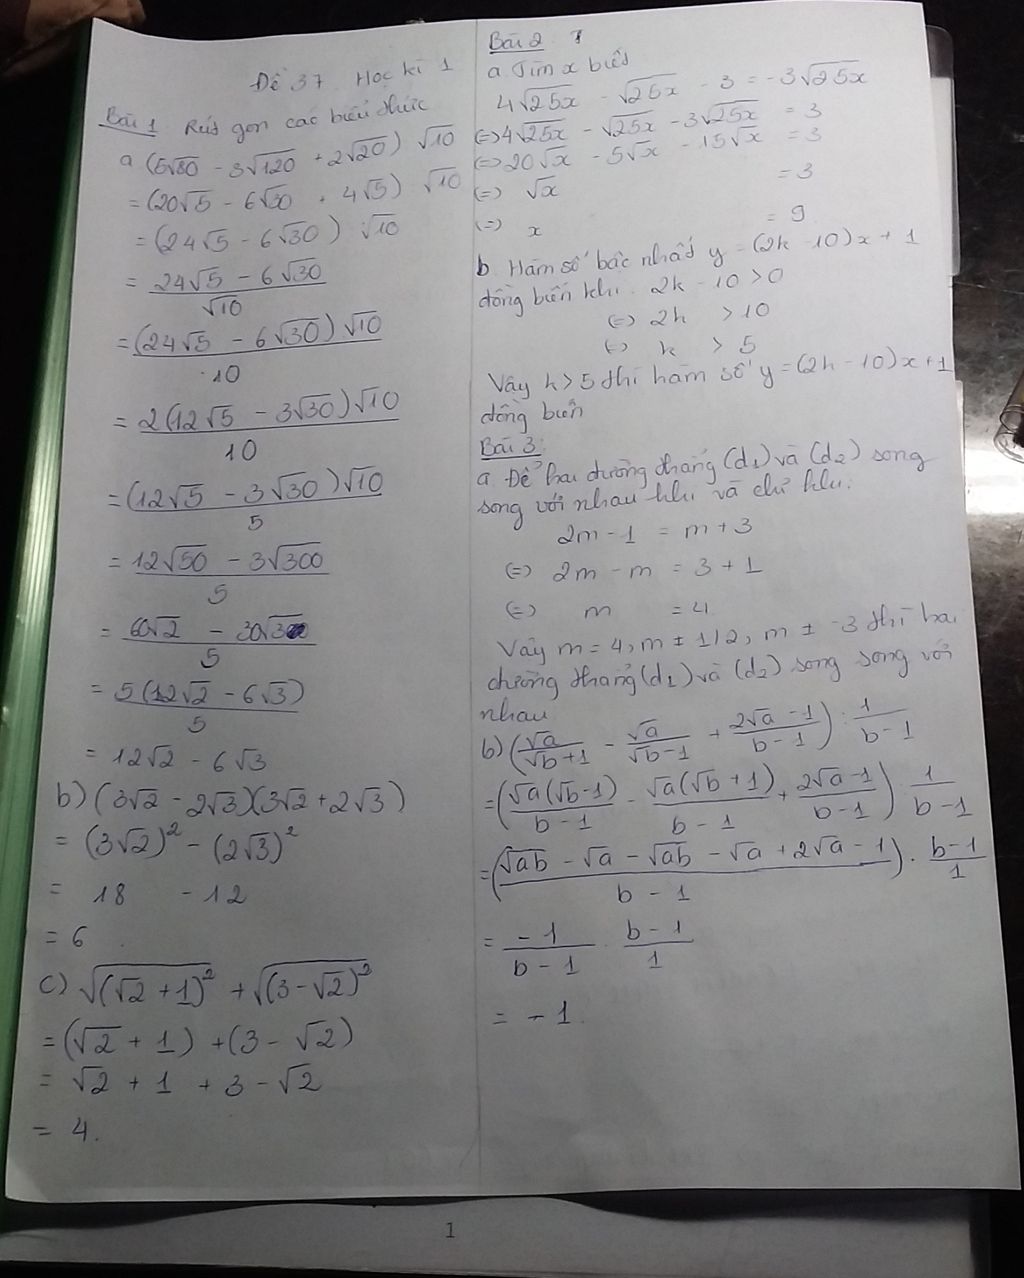 Đề 37 Học kì 1
Bài 1 Rút gọn các biểu thức
a (5√80 - 3√120 + 2√20) √10
= (20√5 - 6√30 + 4√5) √10
= (24√5 - 6√30) √10
= 24√5 - 6√30 / √10
= (24√5 - 6√30)√10 / 10
= 2(12√5 - 3√30)√10 / 10
= (12√5 - 3√30)√10 / 5
= 12√50 - 3√300 / 5
= 60√2 - 30√3 / 5
= 5(12√2 - 6√3) / 5
= 12√2 - 6√3
b) (3√2 - 2√3)(3√2 + 2√3)
= (3√2)² - (2√3)²
= 18 - 12
= 6
c) √(√2 + 1)² + √(3 - √2)²
= (√2 + 1) + (3 - √2)
= √2 + 1 + 3 - √2
= 4.
Bài 2
a. Tìm x biết
4√25x - √25x - 3 = -3√25x
(=) 4√25x - √25x - 3√25x = 3
(=) 20√x - 5√x - 15√x = 3
(=) √x = 3
(=) x = 9
b. Hàm số bậc nhất y = (2k - 10)x + 1
đồng biến khi 2k - 10 > 0
(=) 2k > 10
(=) k > 5
Vậy k > 5 thì hàm số y = (2k - 10)x + 1
đồng biến
Bài 3:
a. Để hai đường thẳng (d₁) và (d₂) song
song với nhau khi và chỉ khi:
2m - 1 = m + 3
(=) 2m - m = 3 + 1
(=) m = 4
Vậy m = 4, m ± 1/2, m ± -3 thì hai
đường thẳng (d₁) và (d₂) song song với
nhau
b) (√a / √b + 1 - √a / √b - 1 + 2√a - 1 / b - 1) : 1 / b - 1
= (√a(√b - 1) / b - 1 - √a(√b + 1) / b - 1 + 2√a - 1 / b - 1) : 1 / b - 1
= (√ab - √a - √ab - √a + 2√a - 1 / b - 1) . b - 1 / 1
= -1 / b - 1 . b - 1 / 1
= -1.
1